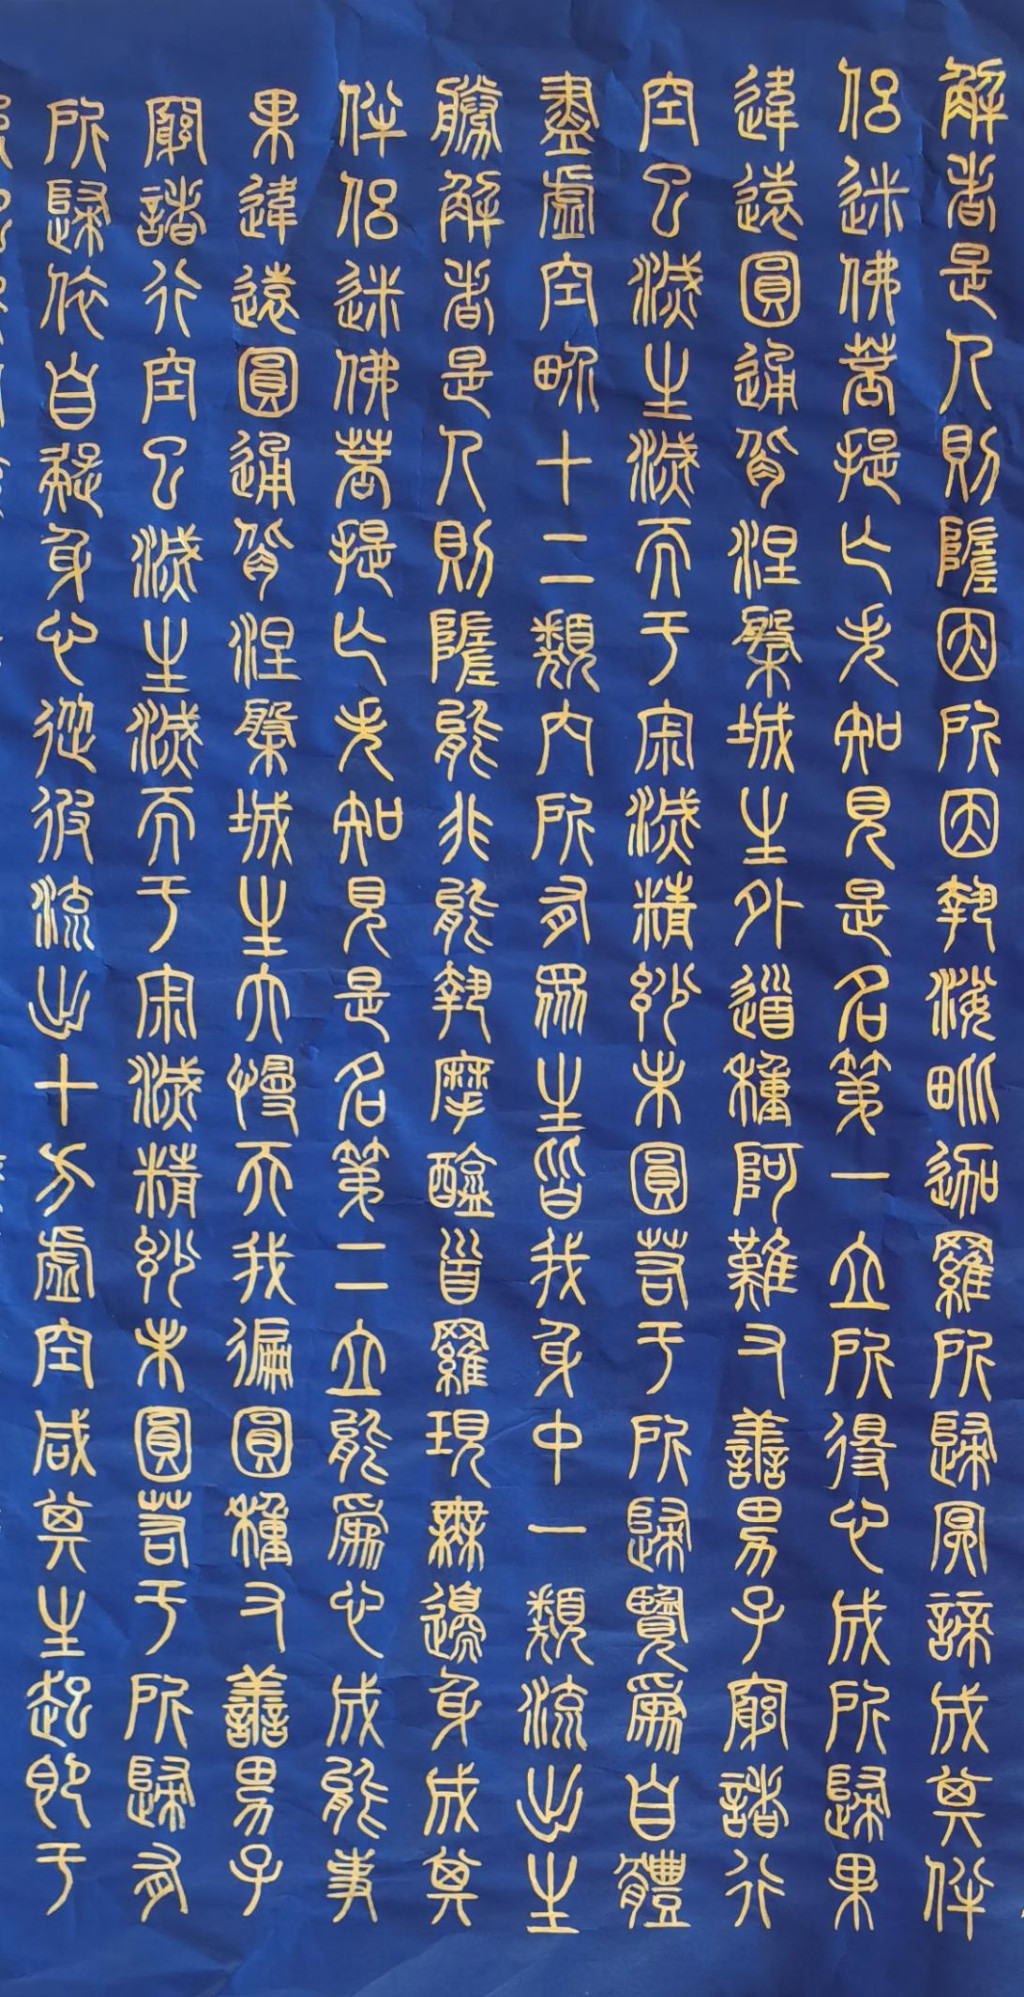 解者是人則墮因所因執娑毗迦羅所歸冥諦成其伴
侶迷佛菩提亡失知見是名第一立所得心成所歸果
違遠圓通背涅槃城生外道種阿難又善男子窮諸行
空已滅生滅而于寂滅精妙未圓若于所歸覽為自體
盡虛空界十二類內所有眾生皆我身中一類流出生
勝解者是人則墮能非能執摩醯首羅現無邊身成其
伴侶迷佛菩提亡失知見是名第二立能為心成能事
果違遠圓通背涅槃城生大慢天我遍圓種又善男子
窮諸行空已滅生滅而于寂滅精妙未圓若于所歸有
所歸依自疑身心從彼流出十方虛空咸其生起即于